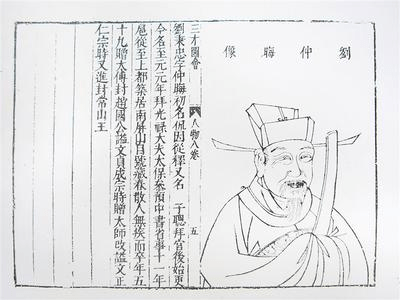 劉仲晦像
三才圖會 人物八卷 五
劉秉忠字仲晦初名侃因從釋又名 子聰拜官後始更
今名至元元年拜光祿大夫太保參預中書省事十一年
扈從至上都築居南屏山自號藏春散人無疾而卒年五
十九贈太傅封趙國公謚文貞成宗時贈太師改謚文正
仁宗時又進封常山王